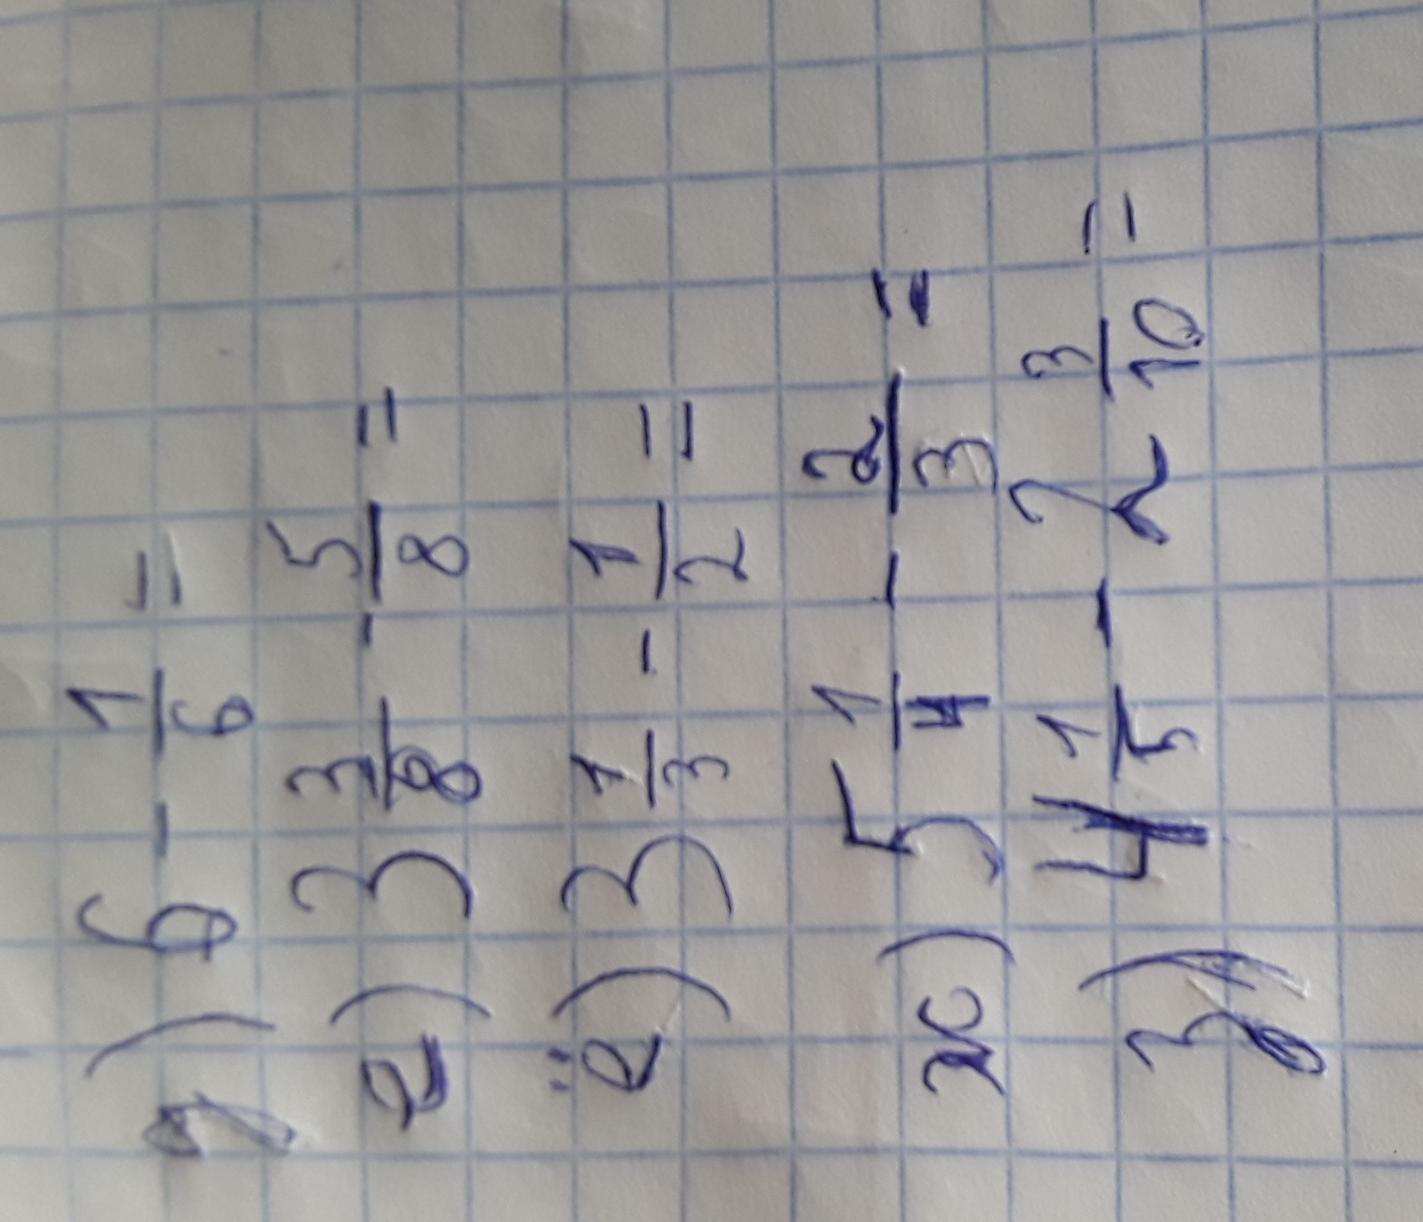 д) 6 - 1/6 =
е) 3 3/8 - 5/8 =
ё) 3 1/3 - 1/2 =
ж) 5 1/4 - 2/3 =
з) 4 1/5 - 2 3/10 =